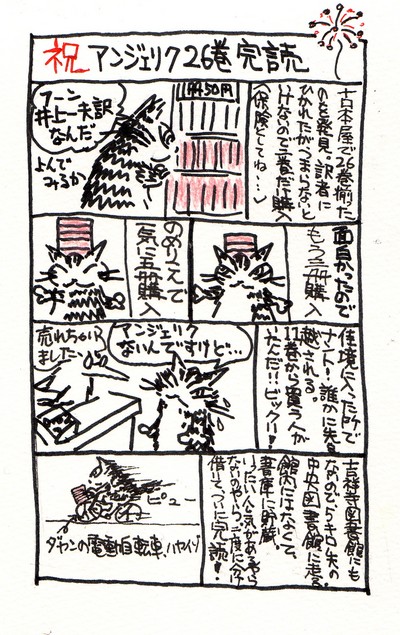 祝 アンジェリク26巻完読
古本屋で26巻揃った
のを発見。訳者に
ひかれたが、つまらないと
イヤなので一巻だけ購入
(保険としてね…)
各50円
フーン
井上一夫訳
なんだ
よんで
みるか
面白かったので
もう三冊購入
のめりこんで
一気に五冊購入
佳境に入った所で
ナント!誰かに先を
越される。
11巻から買う人が
いたんだ!!ビックリ!
アンジェリク
ないんですけど…
売れちゃい
ました
吉祥寺図書館にも
ないので5キロ先の
中央図書館に走る
館内にはなくて、
書庫に貯蔵。
借りて、ついに完読!
ピュー
ダヤンの電動自転車、ハヤイゾ